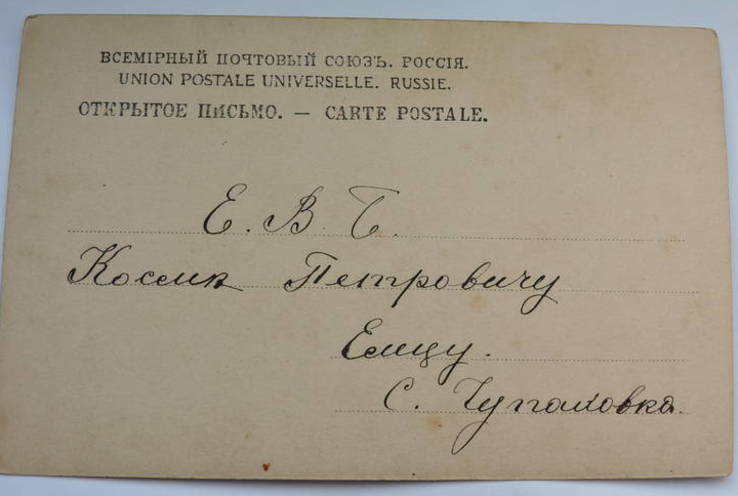 ВСЕМІРНЫЙ ПОЧТОВЫЙ СОЮЗЪ. РОССІЯ.
UNION POSTALE UNIVERSELLE. RUSSIE.
ОТКРЫТОЕ ПИСЬМО. — CARTE POSTALE.
Е. В. Б.
Петровичу
Елицу.
С.